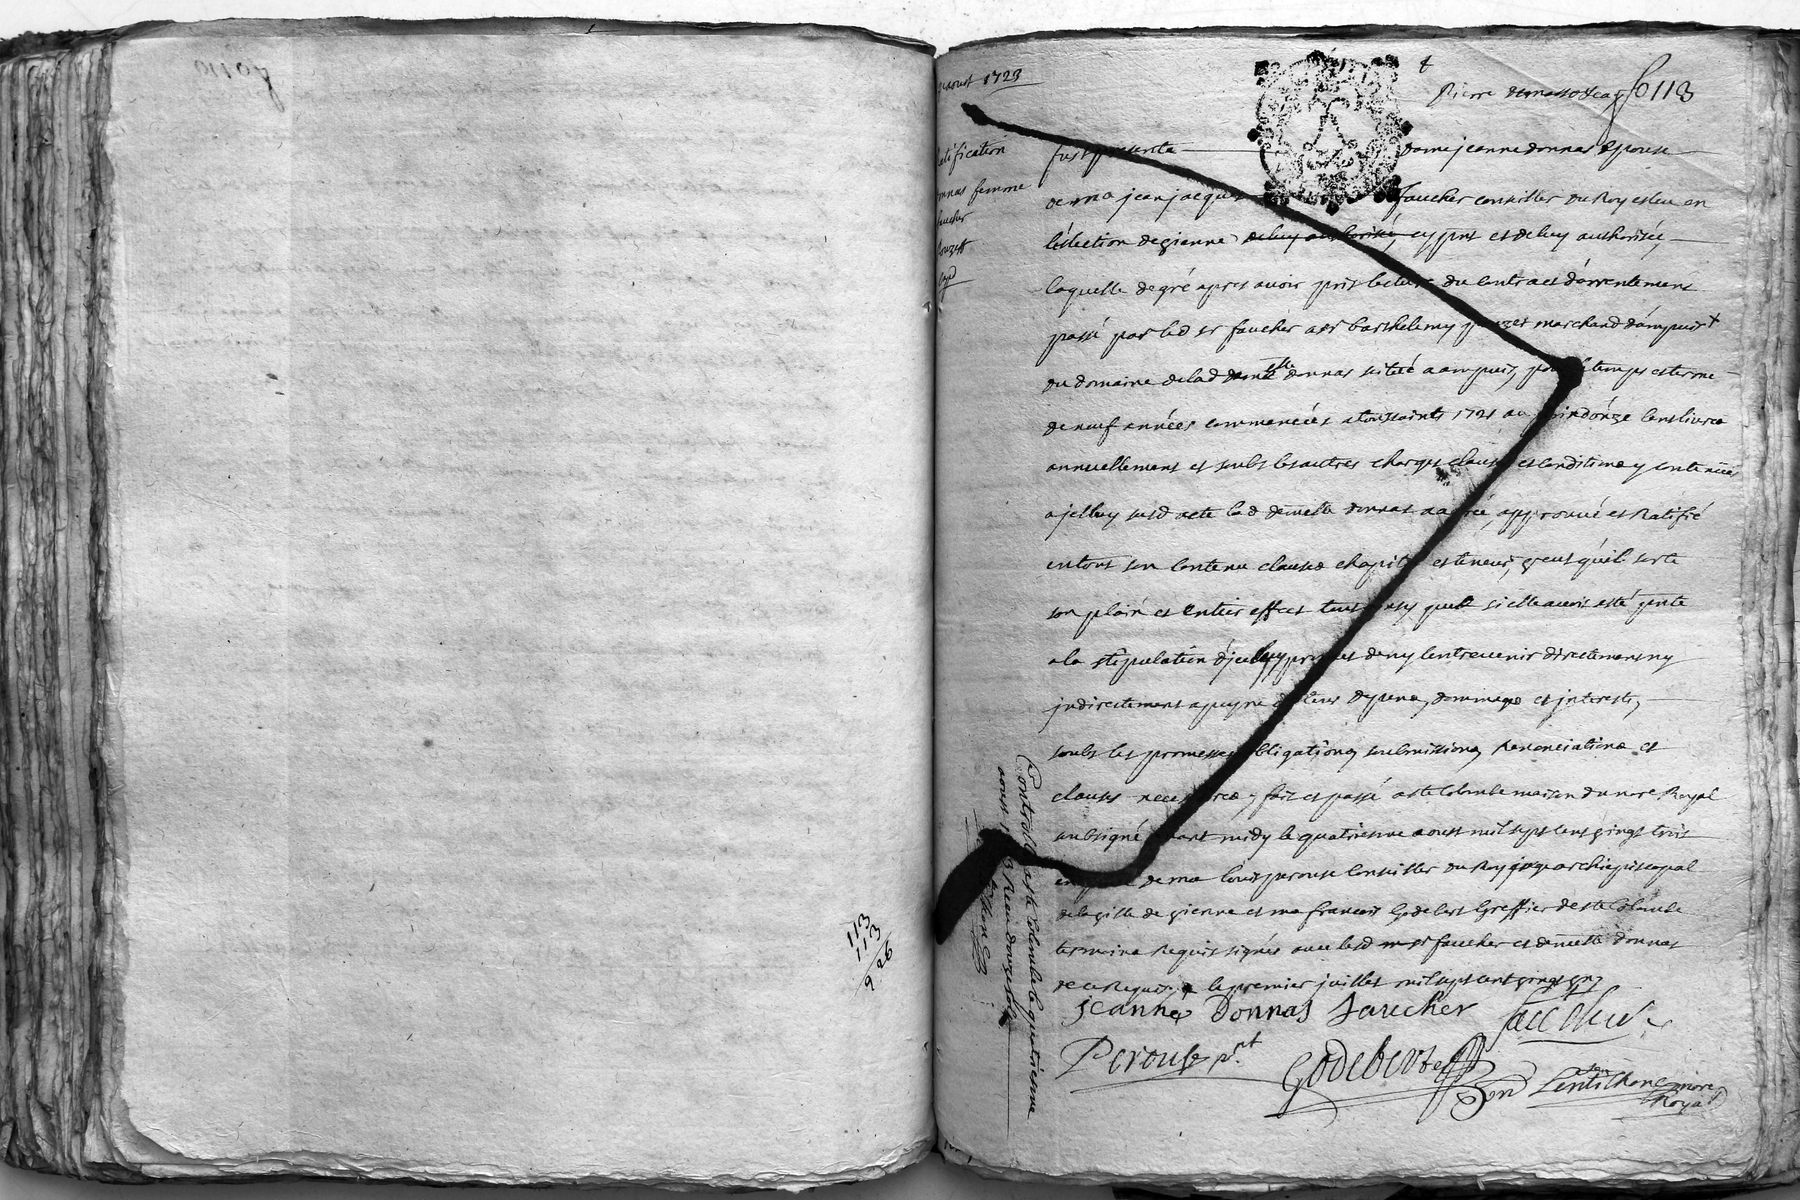 aoust 1723
fo 113
ratification
donnas femme
faucher
fust presente dame jeanne donnas espouse
de me jean jacques faucher conseiller du Roy esleu en
l'eslection de vienne de luy authorisée, cy pnt et de luy authorisée
laquelle de gré apres avoir pris lecture du contract d'arrentement
passé par led sr faucher a sr barthelemy marchand d'ampuis
du domaine de lad demlle donnas scitué a ampuis, pour le temps et terme
de neuf années commencées a toussaints 1721 au cent livres
annuellement et soubs les autres charges clauses et conditions y contenues
a jcelluy susd acte lad demlle donnas a agréé, approuvé et Ratifié
en tout son contenu clauses chapitres et teneur, veut qu'il sorte
son plain et entier effect tout ainsy que si elle avoit esté pnte
a la stipulation d'jcelluy promet de ny contrevenir directement ny
jndirectement a peyne de tous despens, dommages et jnterests,
soubs les promesses obligations, soubmissions, Renonciations et
clauses necessaires, fait et passé a ste Colombe maison du nore Royal
soubsigné avant midy le quatriesme aoust mil sept cens vingt trois
en presence de me louis perouse conseiller du Roy archiepiscopal
de la ville de vienne et me francois Godebert greffier de ste Colombe
tesmoins Requis signés avec lesd sr faucher et demlle donnas
de ce Requis le premier juillet mil sept cent vingt
jeanne donnas faucher
faucher
Perouse pnt
Godebert
Lentillon nore
Royal
Controllé a ste Colombe le quatriesme
aoust Receu douze sols
Lentillon
113
113
226